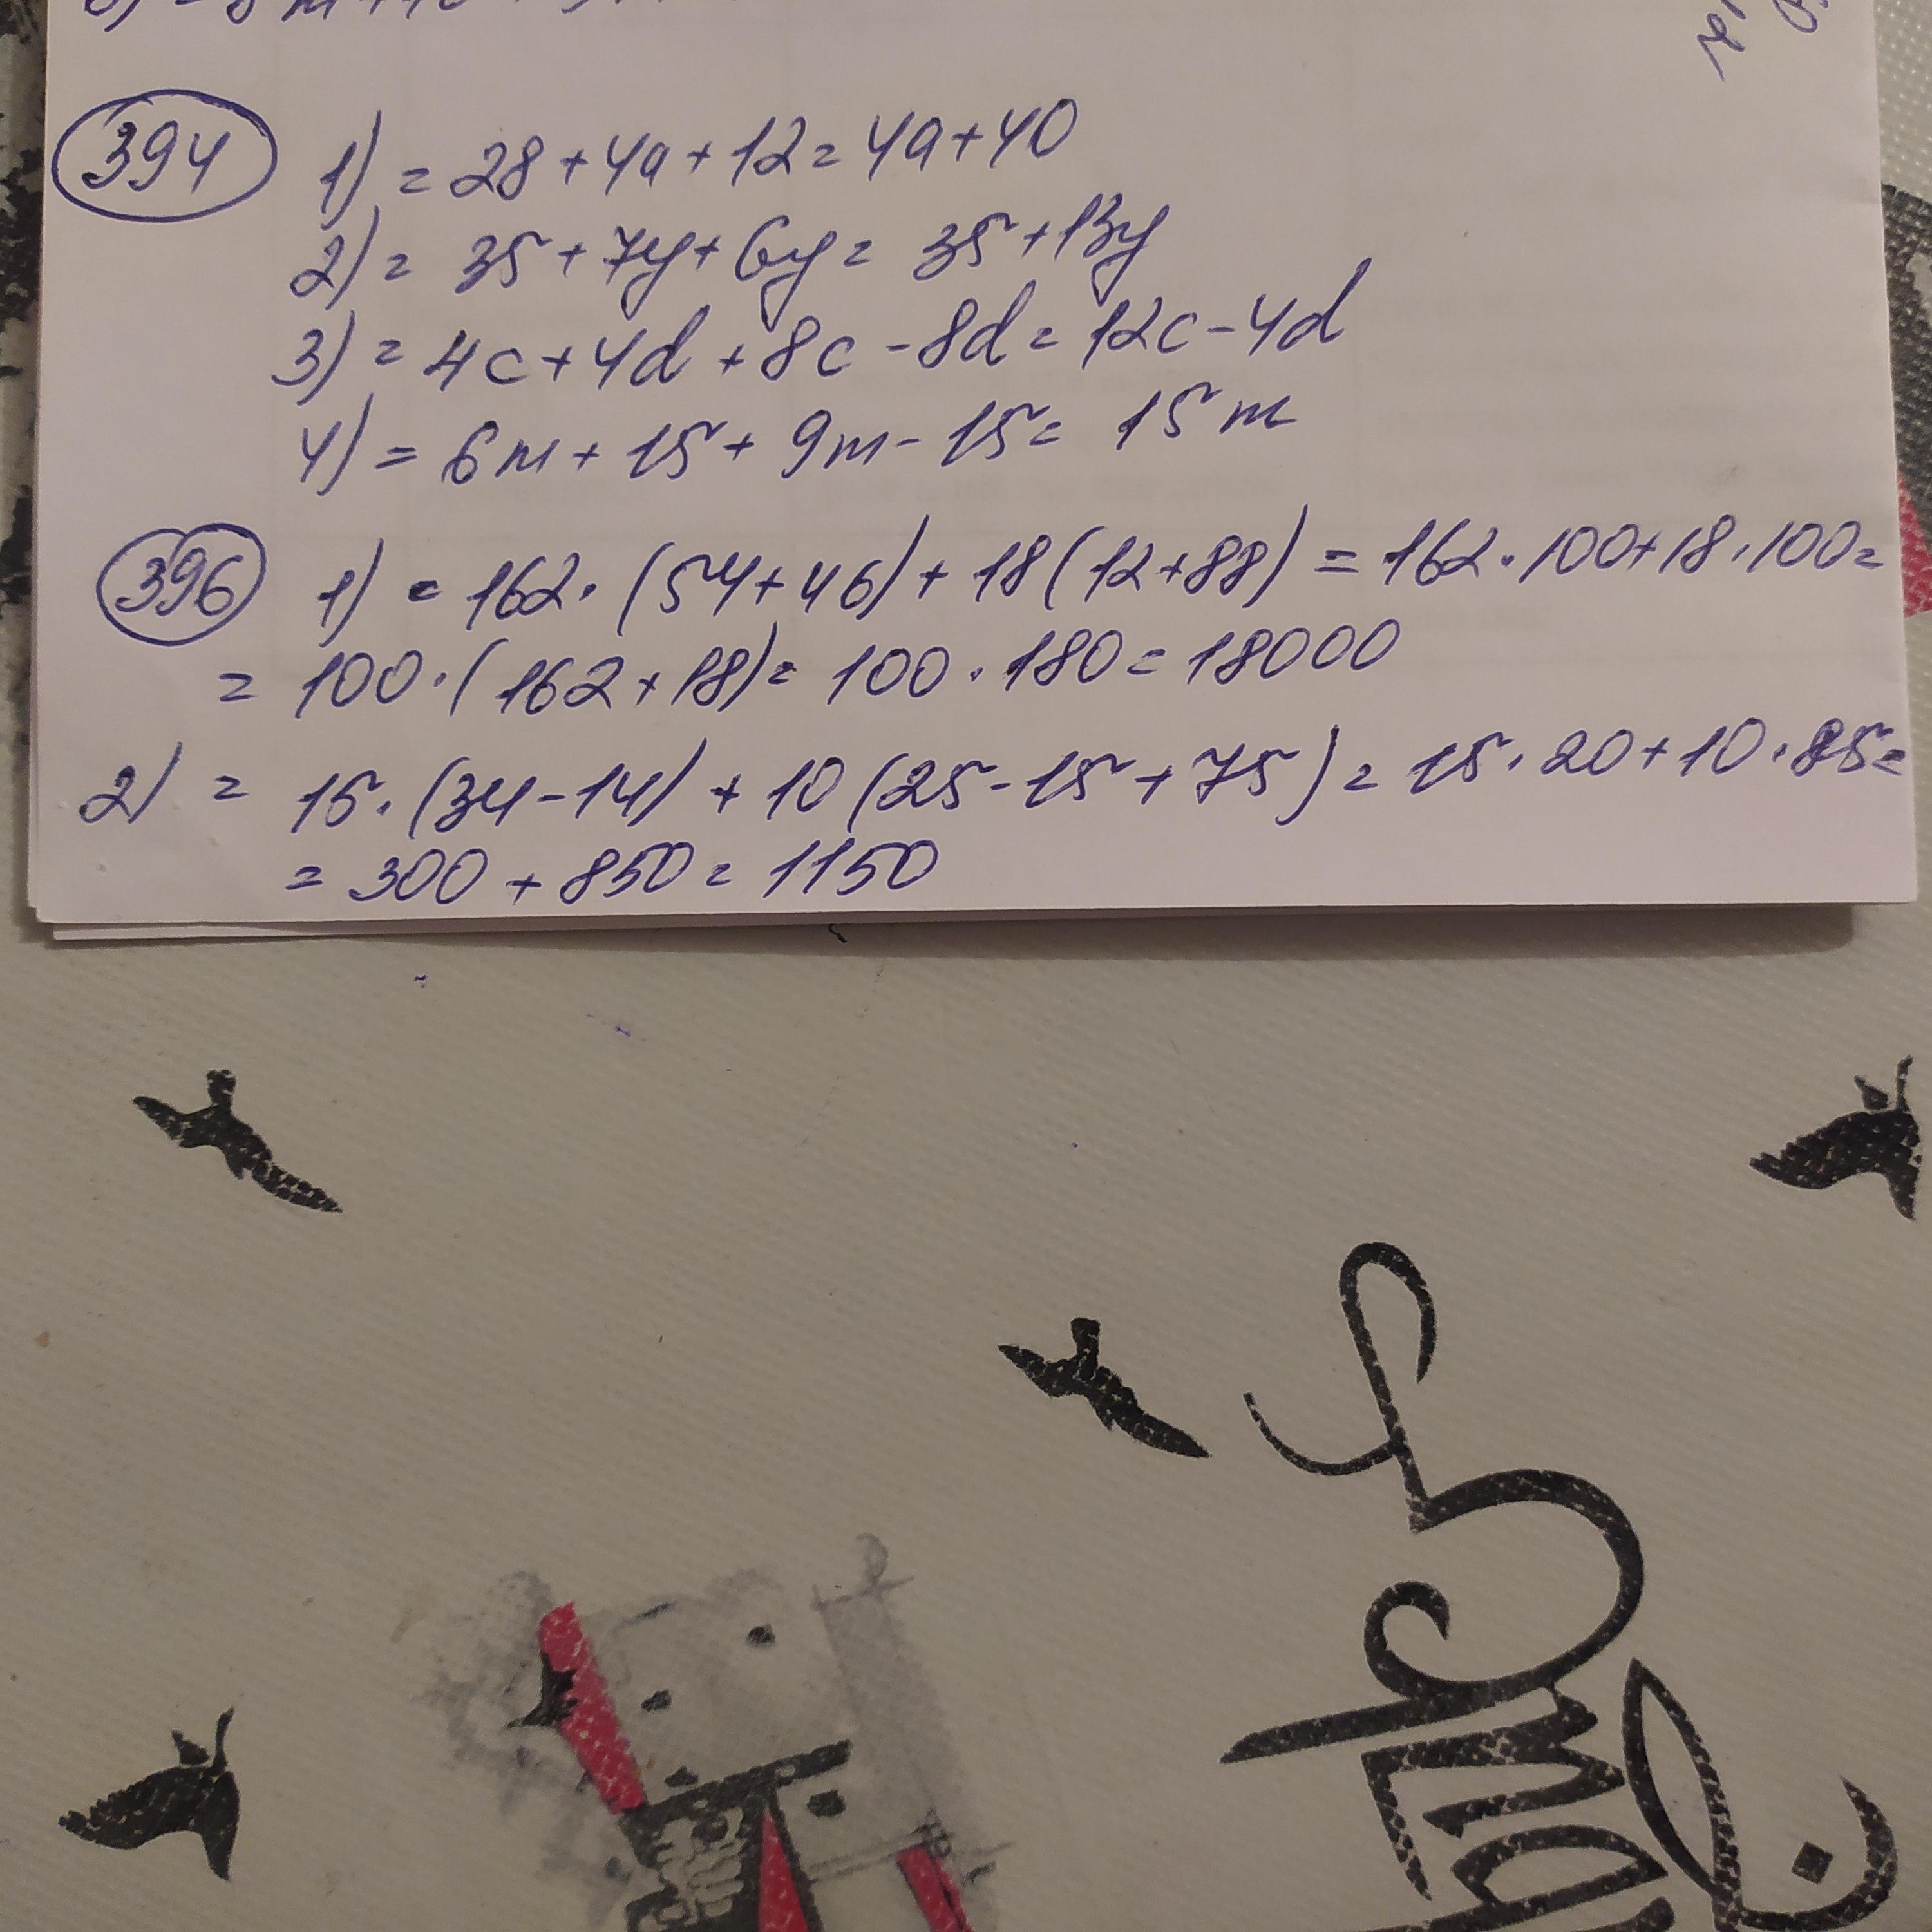 394 1) = 28 + 4a + 12 = 4a + 40
2) = 35 + 7y + 6y = 35 + 13y
3) = 4c + 4d + 8c - 8d = 12c - 4d
4) = 6m + 15 + 9m - 15 = 15m
396 1) = 162 · (54 + 46) + 18 (12 + 88) = 162 · 100 + 18 · 100 =
= 100 · (162 + 18) = 100 · 180 = 18000
2) = 15 · (34 - 14) + 10 (25 - 15 + 75) = 15 · 20 + 10 · 85 =
= 300 + 850 = 1150